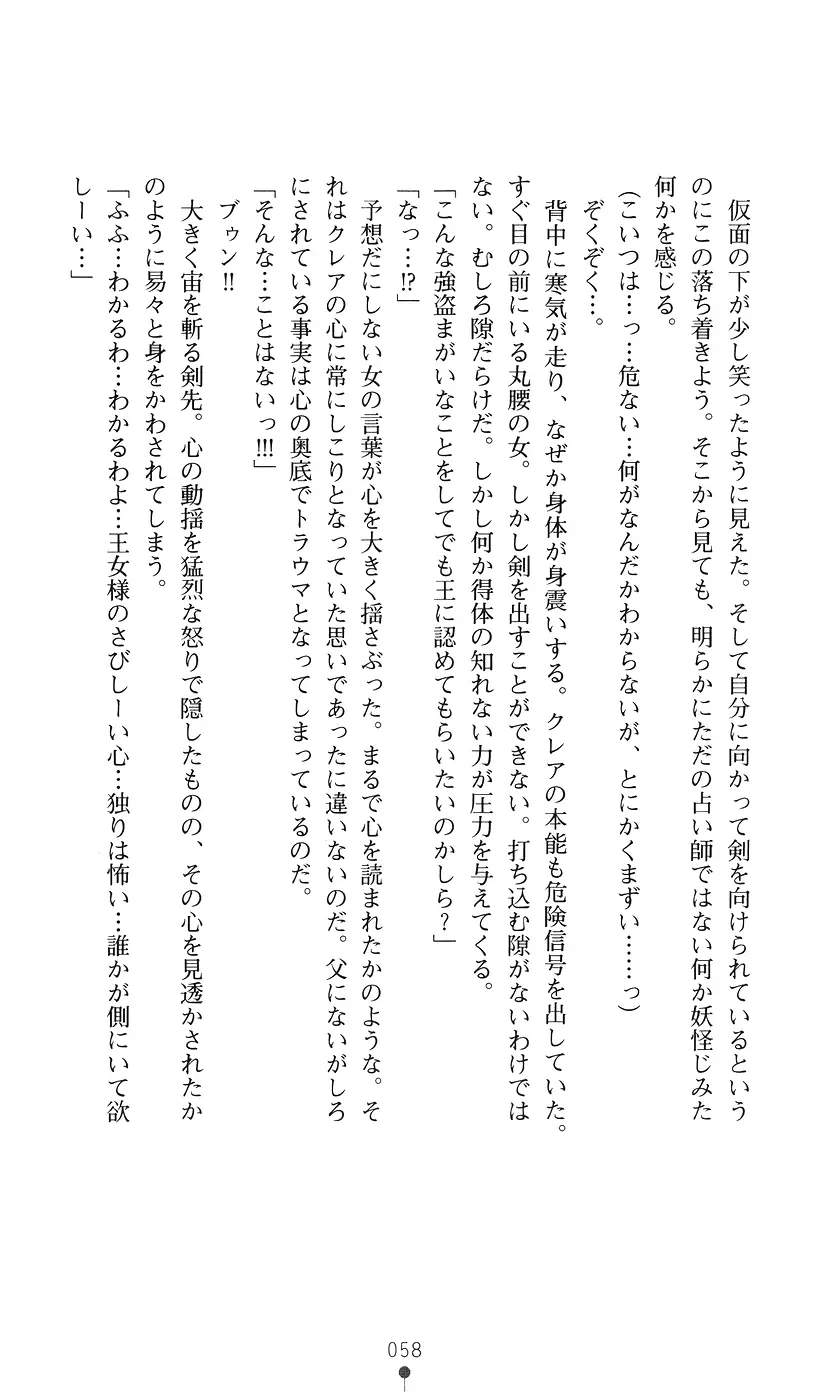 仮面の下が少し笑ったように見えた。そして自分に向かって剣を向けられているという
のにこの落ち着きよう。そこから見ても、明らかにただの占い師ではない何か妖怪じみた
何かを感じる。
（こいつは…っ…危ない…何がなんだかわからないが、とにかくまずい……っ）
　ぞくぞく…。
　背中に寒気が走り、なぜか身体が身震いする。クレアの本能も危険信号を出していた。
すぐ目の前にいる丸腰の女。しかし剣を出すことができない。打ち込む隙がないわけでは
ない。むしろ隙だらけだ。しかし何か得体の知れない力が圧力を与えてくる。
「こんな強盗まがいなことをしてでも王に認めてもらいたいのかしら？」
「なっ…!?」
　予想だにしない女の言葉が心を大きく揺さぶった。まるで心を読まれたかのような。そ
れはクレアの心に常にしこりとなっていた思いであったに違いないのだ。父にないがしろ
にされている事実は心の奥底でトラウマとなってしまっているのだ。
「そんな…ことはないっ!!!」
　ブゥン!!
　大きく宙を斬る剣先。心の動揺を猛烈な怒りで隠したものの、その心を見透かされたか
のように易々と身をかわされてしまう。
「ふふ…わかるわ…わかるわよ…王女様のさびしーい心…独りは怖い…誰かが側にいて欲
しーい…」
058